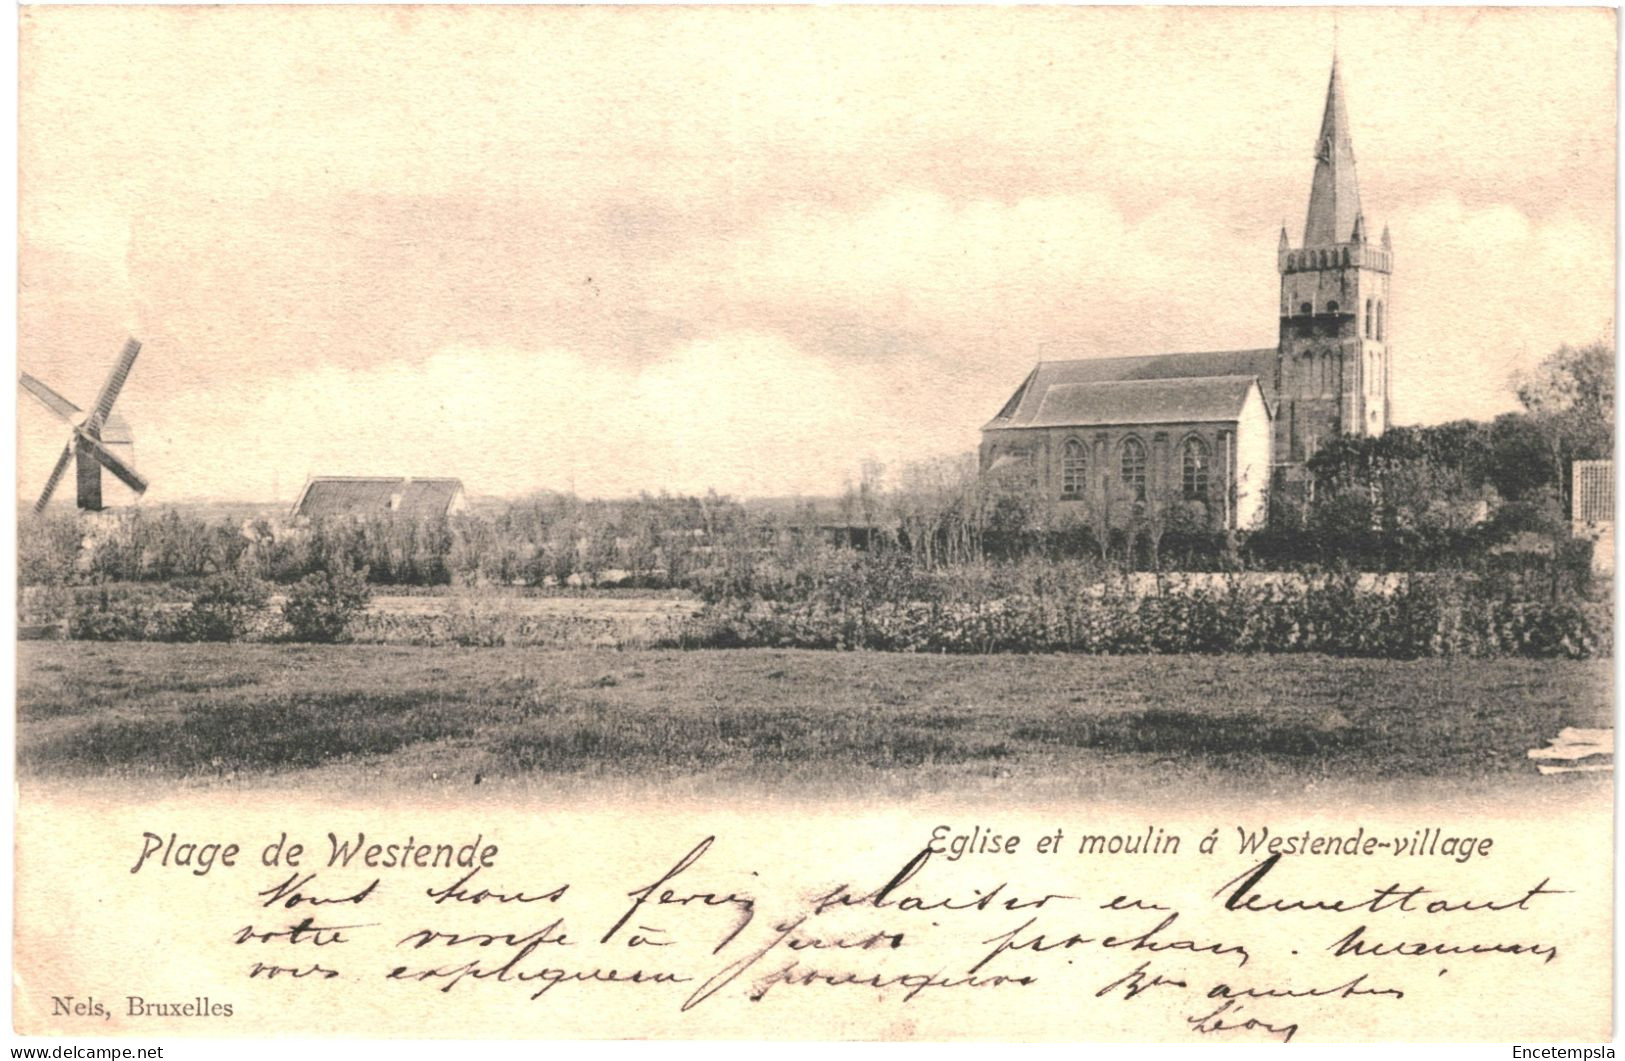 Plage de Westende
Eglise et moulin à Westende-village
Vous nous feriez plaisir en remettant
votre visite à Jeudi prochain. Maman
vous expliquera pourquoi. Bnes amitiés
Léon
Nels, Bruxelles
www.delcampe.net
Encetempsla